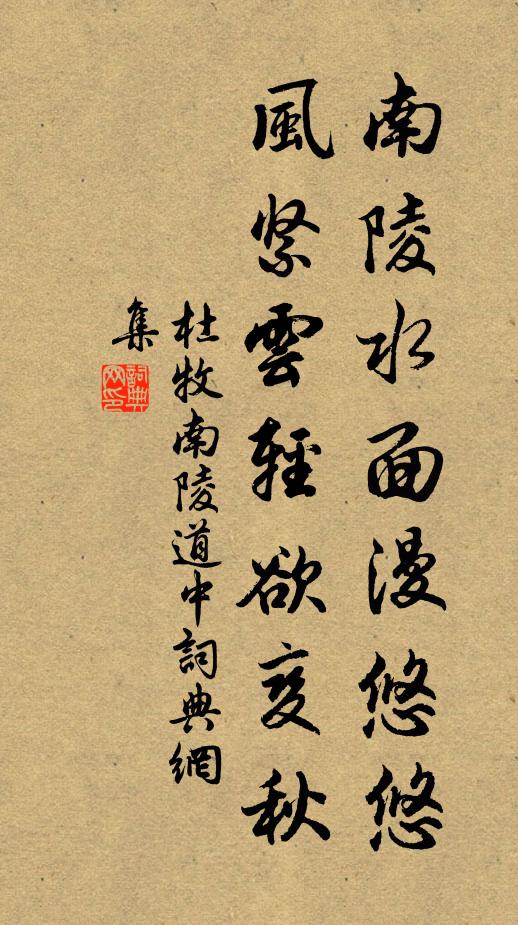 南陵水面漫悠悠
風紧雲輕欲变秋
杜牧南陵道中詞典網
集
詞典
网印